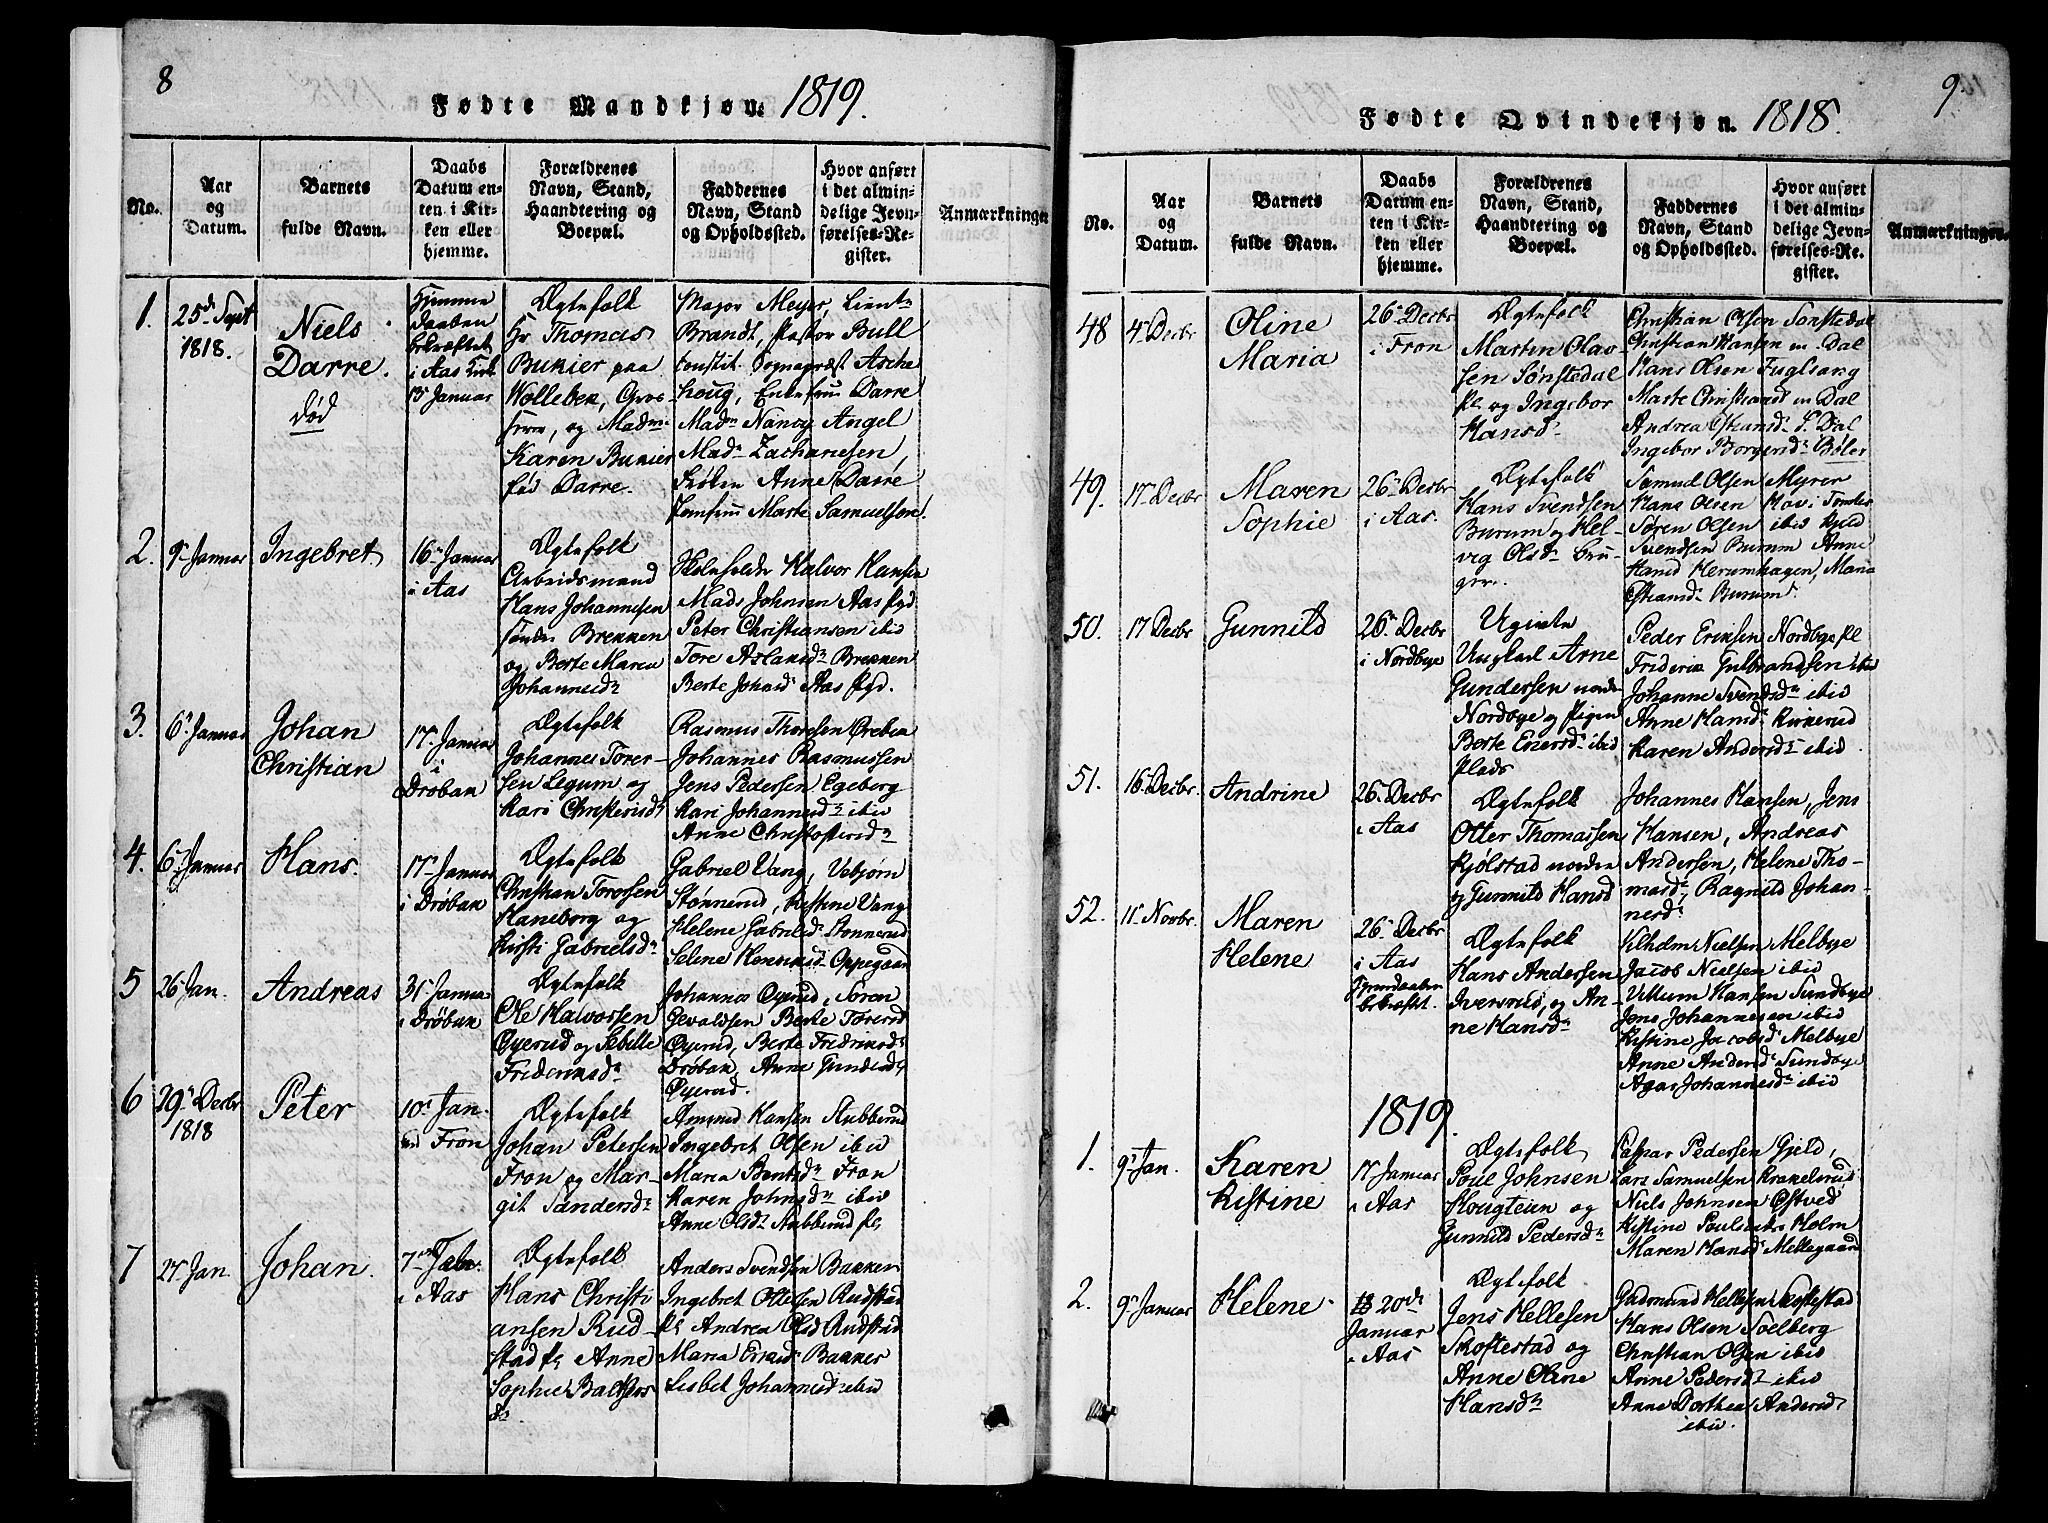 8
Fødte Mandkjøn. 1819.
No.
Aar
og
Datum.
Barnets
fulde Navn.
Daabs
Datum en-
ten i Kir-
ken eller
hjemme.
Forældrenes
Navn, Stand,
Haandtering og
Boepæl.
Faddernes
Navn, Stand
og Opholdssted.
Hvor anført
i det almin-
delige Jevn-
førelses-Re-
gister.
Anmærkninger
1.
25de Sept
1818.
Niels
Darre.
død
Hjemme
daaben
bekræftet
i Aas Kirk
15 Januar
Ægtefolk
Hr Thomas
Bukier paa
Wollebek, Gros-
serer, og Madm
Karen Bukier
fød Darre.
Major Meyer, Lieutn
Brandt, Pastor Bull
constit. Sognepræst Ascha
houg, Enkefrue Darre
Madm Nancy Angel
Madm Zachariesen,
Frøken Anne Darre
Jomfrue Marte Samuelsen.
2.
9n Januar
Ingebret.
16n Januar
i Aas
Ægtefolk
Arbeidsmand
Hans Johannesen
søndre Brekken
og Berte Marea
Johannesdn
Halvor Hansen
Mads Johnsen Aas Pgd
Peter Christiansen ibid
Tore Aslaksdn Brekken
Berte Johnsdn Aas Pgd.
3.
6n Januar
Johan
Christian
17n Januar
i
Drøbak
Ægtefolk
Johannes Torer-
sen Legum og
Kari Christensdn
Rasmus Thoresen Orebek
Johannes Rasmussen
Jens Pedersen Egeberg
Kari Johannesdn ibid
Anne Christophersdn
4.
6n Januar
Hans.
17n Januar
i Drøbak
Ægtefolk
Christian Torersen
Haneborg og
Kirsti Gabrielsdn
Gabriel Vang, Vebjørn
Stønnerud, Kistine Vang
Helene Gabrielsdn Stonnerud
Selene Henriksdn Oppegaard
5
26 Jan.
Andreas
31n Janua
i Drøbak
Ægtefolk
Ole Halvorsen
Oyerud og Sebille
Frideriksdn
Johannes Oyerud, Soren
Gevaldsen Berte Torersd
Oyerud, Berte Frideriksdn
Drøbak, Anne Gundersdn
Oyerud.
6
29n Decbr
1818
Peter
10n Jan.
Fron
Ægtefolk
Johan Petersen
Fron og Mar-
git Sandersdn
Amund Hansen Stubberud
Ingebret Olsen ibid
Maria Bentsdn Fron
Karen Johnsdn ibid
Anne Olsdn Stubberud pl
7
27 Jan.
Johan.
7n Febr.
i Aas
Ægtefolk
Hans Christi
ansen Rud-
stad pl Anne
Sophie Baltzers
dn
Anders Svendsen Bakken
Ingebret Ottesen Rudstad
pl Andrea Olsd Rudstad
Maria Eriksdn Bakken
Lisbet Johannesdn ibid
9.
Fødte Qvindekjøn. 1818.
No.
Aar
og
Datum.
Barnets
fulde Navn.
Daabs
Datum en-
ten i Kir-
ken eller
hjemme.
Forældrenes
Navn, Stand,
Haandtering og
Boepæl.
Faddernes
Navn, Stand
og Opholdssted.
Hvor anført
i det almin-
delige Jevn-
førelses-Re-
gister.
Anmærkninger.
48
4n Decbr
Oline
Maria
26n Decbr
i Fron
Ægtefolk
Marten Olav-
sen Sønstedal
pl og Ingebor
Hansdn
Christian Olsen Sonstedal
Christian Hansen m. Dal
Hans Olsen Fuglsang
Marte Christiansdn m Dal
Andrea Christiansdn S. Dal
Ingebor Borgersdn Bøler
49.
17n Decbr
Maren
Sophie
26n Decbr
i Aas.
Ægtefolk
Hans Svendsen
Burum og Hel-
vig Olsdn bru-
gere.
Samud Olsen Myrer
Hans Olsen
Søren Olsen ibid Knud
Svendsen Burum Anne
Hansd Herumhagen, Maria
Christiansdn Burum.
50.
17 Decbr
Gunnild
26n Decbr
i Nordbye
Ugivte
Ungkarl Arne
Gundersen nordre
Nordbye og Pigen
Berte Enersdn ibid
Plads
Peder Eriksen Nordbye pl
Friderik Gulbrandsen ibid
Johanne Svendsdn ibid
Anne Hansdn Kirkerud
Karen Andersdn ibid
51.
16n Decbr.
Andrine
26n Decbr
i Aas
Ægtefolk
Otter Thomassen
Kjølstad nordre
og Gunnild Hansd
Johannes Hansen, Jens
Hansen, Andreas
Andersen, Helene Tho-
masdn, Ragnild Johan-
nesdn
52.
11n Novbr.
Maren
Helene
26n Decbr
i Aas
bekræftet.
Ægtefolk
Hans Andersen
Iversrud, og An-
ne Hansdn
Vilhelm Nielsen Melbye
Jacob Nielsen ibid
Villum Hansen Sundbye
Jens Johannesen ibid
Kistine Jacobsdn Melbye
Anne Andersdn Sundbye
Agar Johannesdn ibid
1819.
1.
9n Jan.
Karen
Kistine
17 Januar
i Aas
Ægtefolk
Poul Johnsen
Hougteien og
Gunnild Pedersdn
Caspar Pedersen Gjeld,
Lars Samuelsen Krakelsrud
Niels Johnsen Østved
Kistine Poulsdn Holm
Maren Hansd Mellegaard
2.
9n Januar
Helene
18 20de
Januar
i Aas
Ægtefolk
Jens Hellesen
Skoftestad og
Anne Oline
Hansdn
Gudmund Hellesen Skoftestad
Hans Olsen Solberg
Christian Olsen ibid
Anne Pedersd ibid
Anne Dorthea Andersd
ibid.